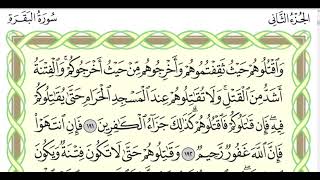 الجزء الثاني سورة البقرة
وَاقْتُلُوهُمْ حَيْثُ ثَقِفْتُمُوهُمْ وَأَخْرِجُوهُم مِّنْ حَيْثُ أَخْرَجُوكُمْ وَالْفِتْنَةُ
أَشَدُّ مِنَ الْقَتْلِ وَلَا تُقَاتِلُوهُمْ عِندَ الْمَسْجِدِ الْحَرَامِ حَتَّىٰ يُقَاتِلُوكُمْ
فِيهِ فَإِن قَاتَلُوكُمْ فَاقْتُلُوهُمْ كَذَٰلِكَ جَزَاءُ الْكَافِرِينَ ١٩١ فَإِنِ انتَهَوْا
فَإِنَّ اللَّهَ غَفُورٌ رَّحِيمٌ ١٩٢ وَقَاتِلُوهُمْ حَتَّىٰ لَا تَكُونَ فِتْنَةٌ وَيَكُونَ